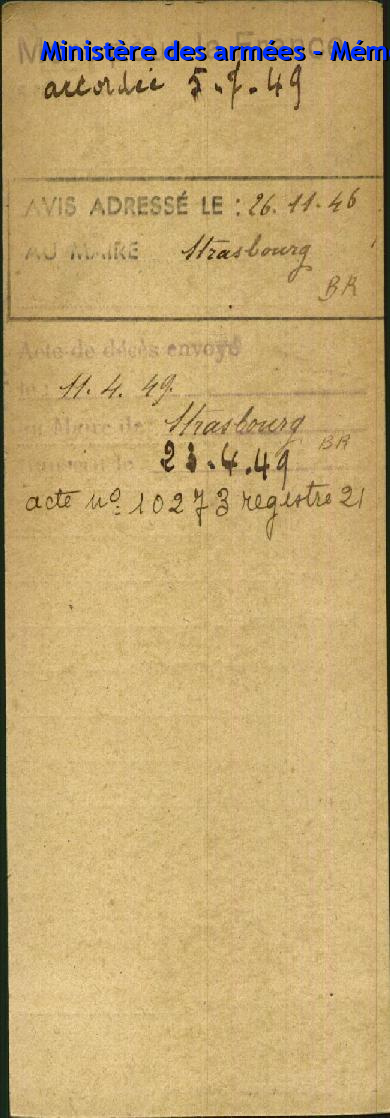 Ministère des armées - Mém
Mort pour la France
accordée 5.7.49
AVIS ADRESSÉ LE : 26.11.46
AU MAIRE Strasbourg
BR
Acte de décès envoyé
le : 11.4.49
au Maire de Strasbourg
BR
transcrit le 23.4.49
acte no 10273 registre 21